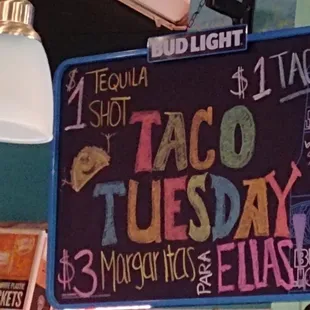 BUD LIGHT
$1 TEQUILA
SHOT
$1 TA
TACO
TUESDAY
$3 Margaritas PARA ELLAS